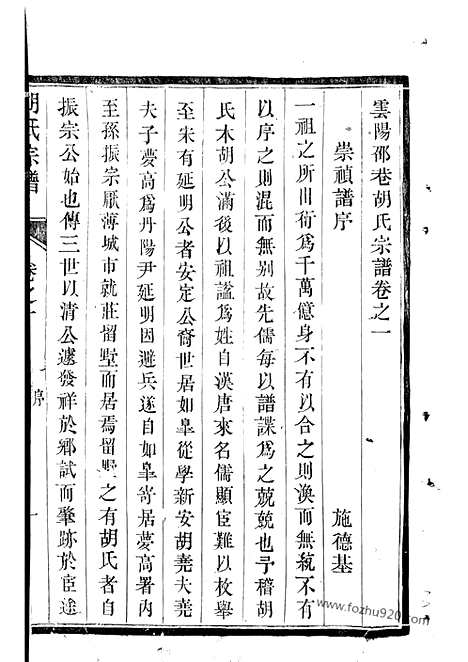 雲陽邵巷胡氏宗譜卷之一
崇禎譜序 施德基
一祖之所出衍爲千萬億身不有以合之則渙而無統不有
以序之則混而無别故先儒每以譜諜爲之兢兢也予稽胡
氏本胡公滿後以祖謚爲姓自漢唐來名儒顯臣難以枚舉
至宋有延明公者安定公裔世居如臯從學新安胡堯夫堯
夫子夢高爲丹陽尹延明因避兵遂自如臯寄居夢高署内
至孫振宗厭薄城市就莊留墅而居焉留墅之有胡氏者自
振宗公始也傳三世以清公遽發祥於鄉試而肇跡於臣途
胡氏宗譜 卷之一 序 一
www.fozhu920.com